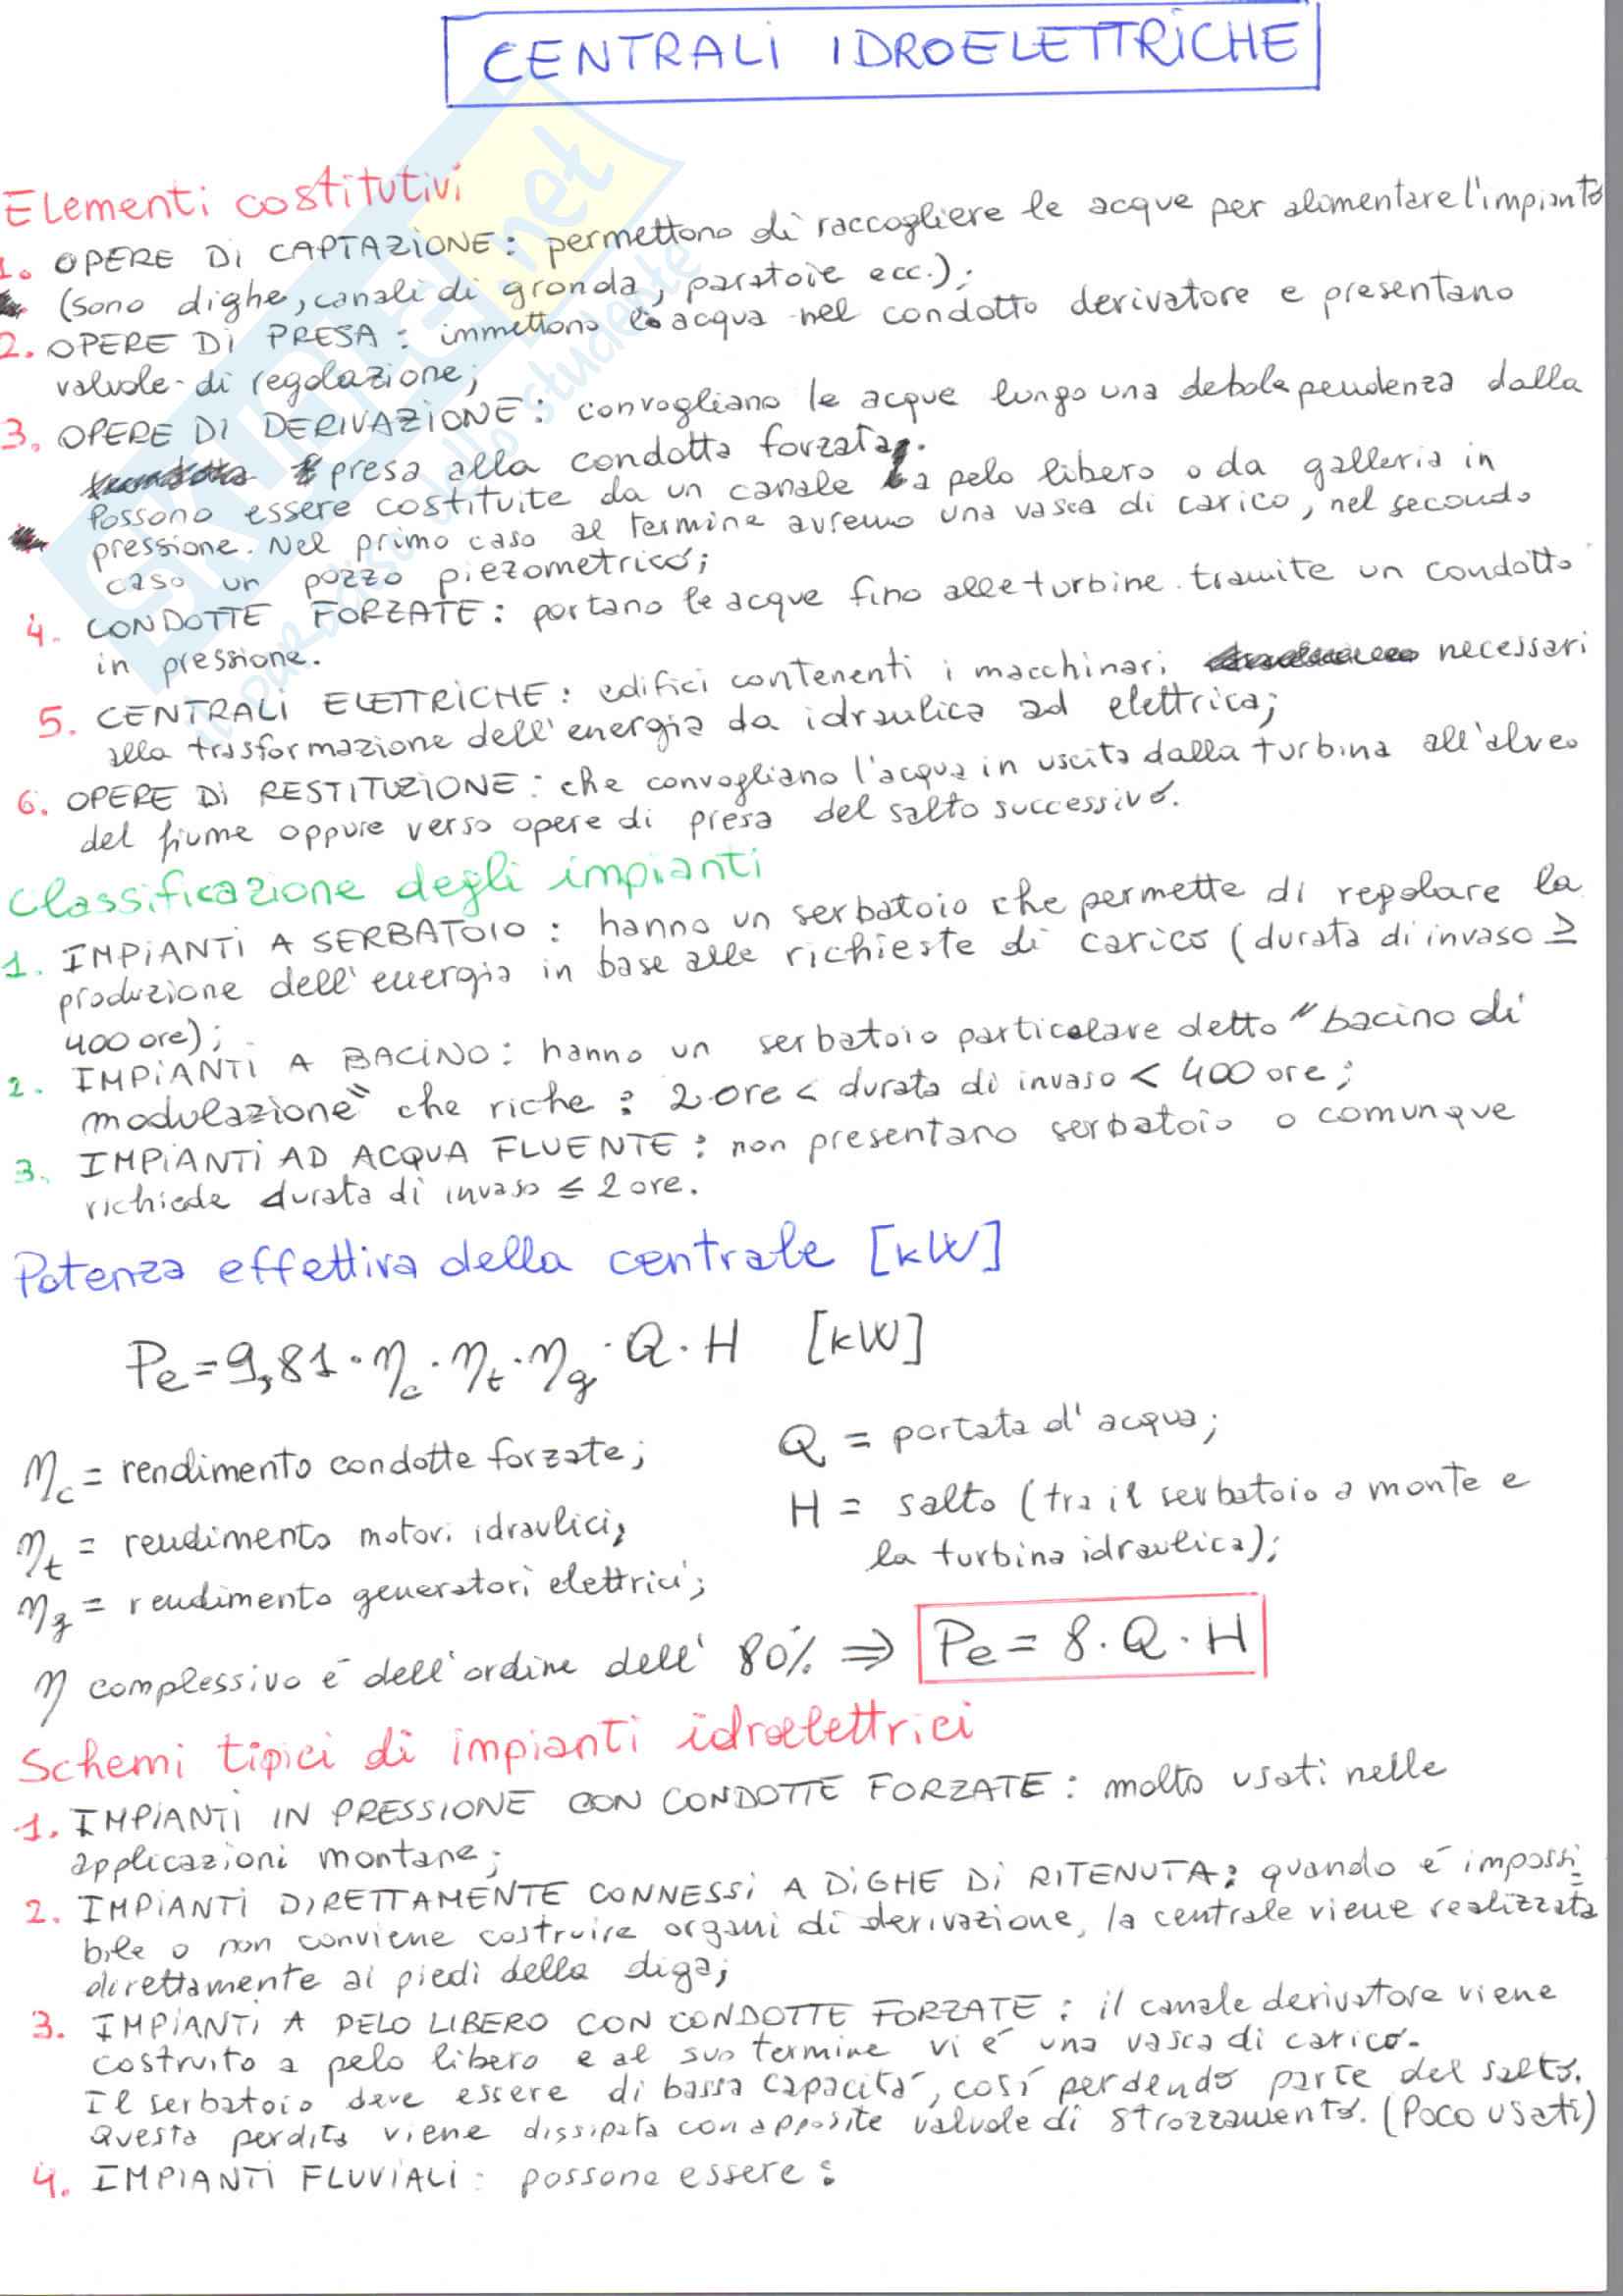 CENTRALI IDROELETTRICHE
Elementi costitutivi
1. OPERE DI CAPTAZIONE: permettono di raccogliere le acque per alimentare l'impianto
(sono dighe, canali di gronda, paratoie ecc.);
2. OPERE DI PRESA: immettono l'acqua nel condotto derivatore e presentano
valvole di regolazione;
3. OPERE DI DERIVAZIONE: convogliano le acque lungo una debole pendenza dalla
presa alla condotta forzata.
Possono essere costituite da un canale a pelo libero o da galleria in
pressione. Nel primo caso al termine avremo una vasca di carico, nel secondo
caso un pozzo piezometrico;
4. CONDOTTE FORZATE: portano le acque fino alle turbine tramite un condotto
in pressione.
5. CENTRALI ELETTRICHE: edifici contenenti i macchinari necessari
alla trasformazione dell'energia da idraulica ad elettrica;
6. OPERE DI RESTITUZIONE: che convogliano l'acqua in uscita dalla turbina all'alveo
del fiume oppure verso opere di presa del salto successivo.
Classificazione degli impianti
1. IMPIANTI A SERBATOIO: hanno un serbatoio che permette di regolare la
produzione dell'energia in base alle richieste di carico (durata di invaso ≥
400 ore);
2. IMPIANTI A BACINO: hanno un serbatoio particolare detto "bacino di
modulazione" che riche: 2 ore < durata di invaso < 400 ore;
3. IMPIANTI AD ACQUA FLUENTE: non presentano serbatoio o comunque
richiede durata di invaso ≤ 2 ore.
Potenza effettiva della centrale [kW]
Pe = 9,81 · ηc · ηt · ηg · Q · H [kW]
ηc = rendimento condotte forzate;
Q = portata d'acqua;
ηt = rendimento motori idraulici;
H = salto (tra il serbatoio a monte e
la turbina idraulica);
ηg = rendimento generatori elettrici;
η complessivo è dell'ordine dell' 80% ⇒ Pe = 8 · Q · H
Schemi tipici di impianti idroelettrici
1. IMPIANTI IN PRESSIONE CON CONDOTTE FORZATE: molto usati nelle
applicazioni montane;
2. IMPIANTI DIRETTAMENTE CONNESSI A DIGHE DI RITENUTA: quando è impossi
bile o non conviene costruire organi di derivazione, la centrale viene realizzata
direttamente ai piedi della diga;
3. IMPIANTI A PELO LIBERO CON CONDOTTE FORZATE: il canale derivatore viene
costruito a pelo libero e al suo termine vi è una vasca di carico.
Il serbatoio deve essere di bassa capacità, così perdendo parte del salto.
Questa perdita viene dissipata con apposite valvole di strozzamento. (Poco usati)
4. IMPIANTI FLUVIALI: possono essere: